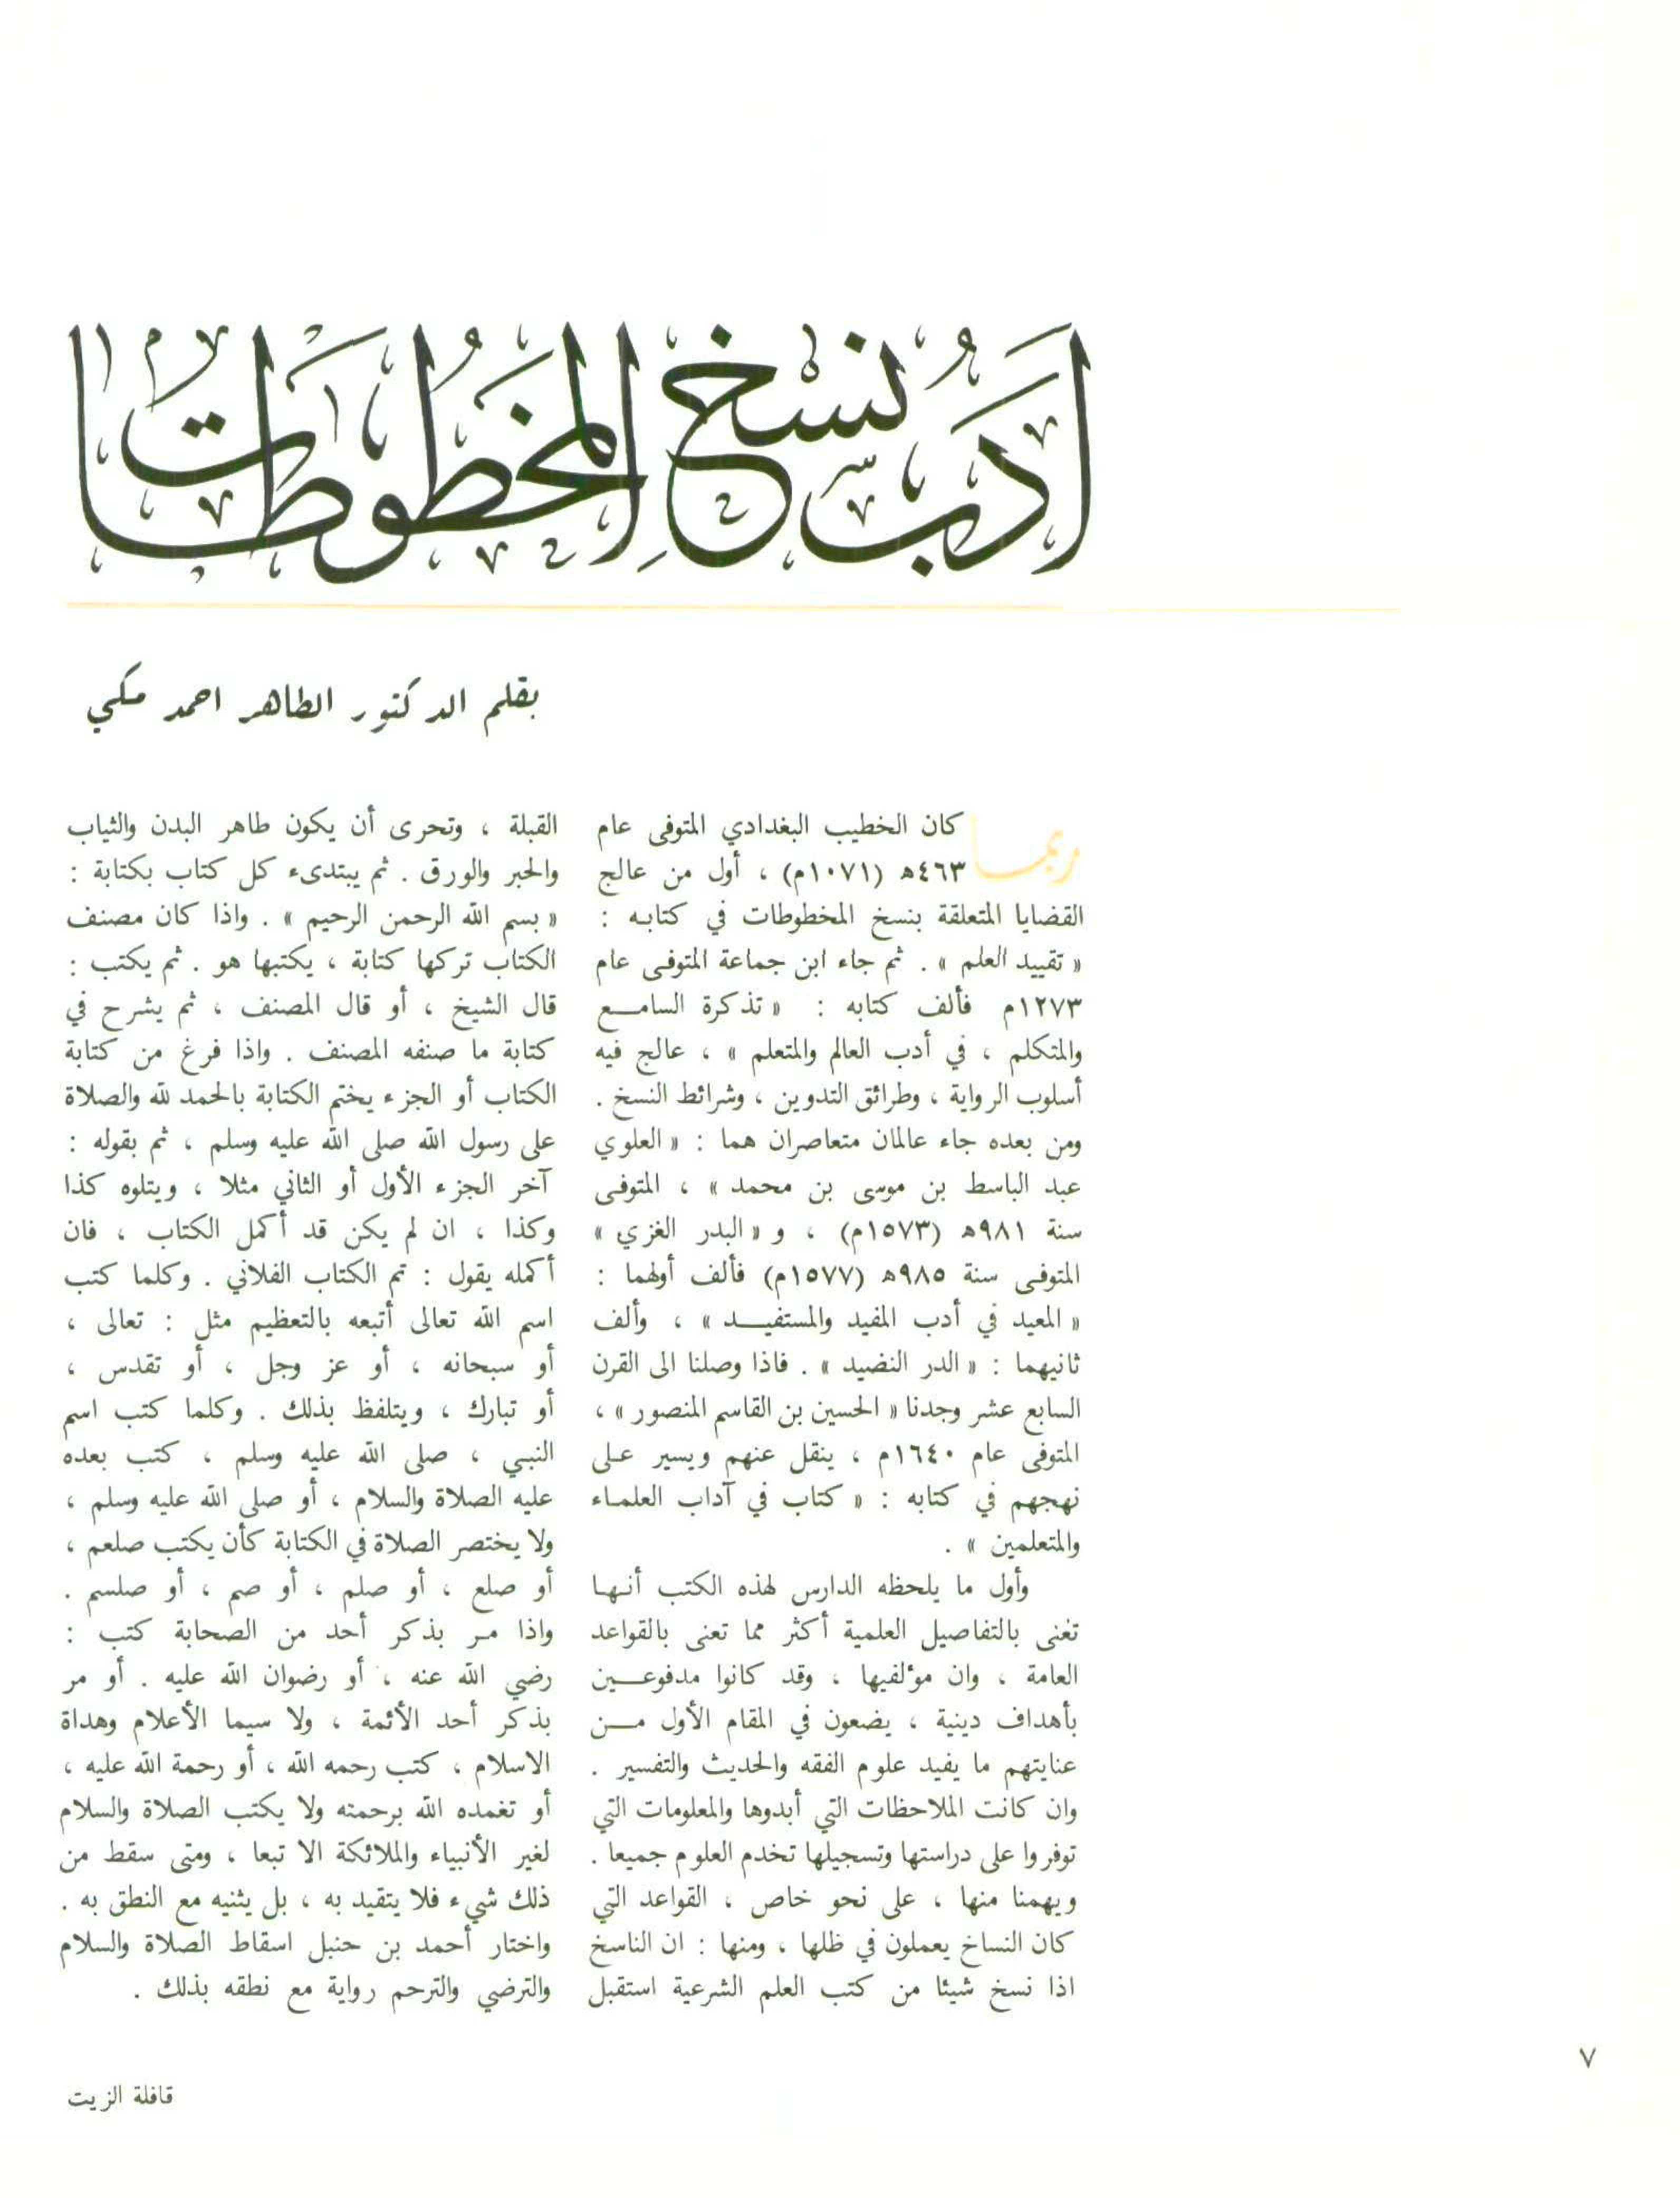 أدب نسخ المخطوطات
بقلم الدكتور الطاهر احمد مكي
ربما كان الخطيب البغدادي المتوفى عام
٤٦٣ه (١٠٧١م) ، أول من عالج
القضايا المتعلقة بنسخ المخطوطات في كتابه :
« تقييد العلم » . ثم جاء ابن جماعة المتوفى عام
١٢٧٣م فألف كتابه : « تذكرة السامع
والمتكلم ، في أدب العالم والمتعلم » ، عالج فيه
أسلوب الرواية ، وطرائق التدوين ، وشرائط النسخ .
ومن بعده جاء عالمان متعاصران هما : « العلوي
عبد الباسط بن موسى بن محمد » ، المتوفى
سنة ٩٨١ه (١٥٧٣م) ، و « البدر الغزي »
المتوفى سنة ٩٨٥ه (١٥٧٧م) فألف أولهما :
« المعيد في أدب المفيد والمستفيد » ، وألف
ثانيهما : « الدر النضيد » . فاذا وصلنا الى القرن
السابع عشر وجدنا « الحسين بن القاسم المنصور » ،
المتوفى عام ١٦٤٠م ، ينقل عنهم ويسير على
نهجهم في كتابه : « كتاب في آداب العلماء
والمتعلمين » .
وأول ما يلحظه الدارس لهذه الكتب أنها
تغنى بالتفاصيل العلمية أكثر مما تعنى بالقواعد
العامة ، وان مؤلفيها ، وقد كانوا مدفوعين
بأهداف دينية ، يضعون في المقام الأول من
عنايتهم ما يفيد علوم الفقه والحديث والتفسير .
وان كانت الملاحظات التي أبدوها والمعلومات التي
توفروا على دراستها وتسجيلها تخدم العلوم جميعا .
ويهمنا منها ، على نحو خاص ، القواعد التي
كان النساخ يعملون في ظلها ، ومنها : ان الناسخ
اذا نسخ شيئا من كتب العلم الشرعية استقبل
القبلة ، وتحرى أن يكون طاهر البدن والثياب
والحبر والورق . ثم يبتدىء كل كتاب بكتابة :
« بسم الله الرحمن الرحيم » . واذا كان مصنف
الكتاب تركها كتابة ، يكتبها هو . ثم يكتب :
قال الشيخ ، أو قال المصنف ، ثم يشرح في
كتابة ما صنفه المصنف . واذا فرغ من كتابة
الكتاب أو الجزء يختم الكتابة بالحمد لله والصلاة
على رسول الله صلى الله عليه وسلم ، ثم بقوله :
آخر الجزء الأول أو الثاني مثلا ، ويتلوه كذا
وكذا ، ان لم يكن قد أكمل الكتاب ، فان
أكمله يقول : تم الكتاب الفلاني . وكلما كتب
اسم الله تعالى أتبعه بالتعظيم مثل : تعالى ،
أو سبحانه ، أو عز وجل ، أو تقدس ،
أو تبارك ، ويتلفظ بذلك . وكلما كتب اسم
النبي ، صلى الله عليه وسلم ، كتب بعده
عليه الصلاة والسلام ، أو صلى الله عليه وسلم ،
ولا يختصر الصلاة في الكتابة كأن يكتب صلعم ،
أو صلع ، أو صلم ، أو صم ، أو صلسم .
واذا مر بذكر أحد من الصحابة كتب :
رضي الله عنه ، أو رضوان الله عليه . أو مر
بذكر أحد الأئمة ، ولا سيما الأعلام وهداة
الاسلام ، كتب رحمه الله ، أو رحمة الله عليه ،
أو تغمده الله برحمته ولا يكتب الصلاة والسلام
لغير الأنبياء والملائكة الا تبعا ، ومتى سقط من
ذلك شيء فلا يتقيد به ، بل يثنيه مع النطق به .
واختار أحمد بن حنبل اسقاط الصلاة والسلام
والترضي والترحم رواية مع نطقه بذلك .
٧
قافلة الزيت